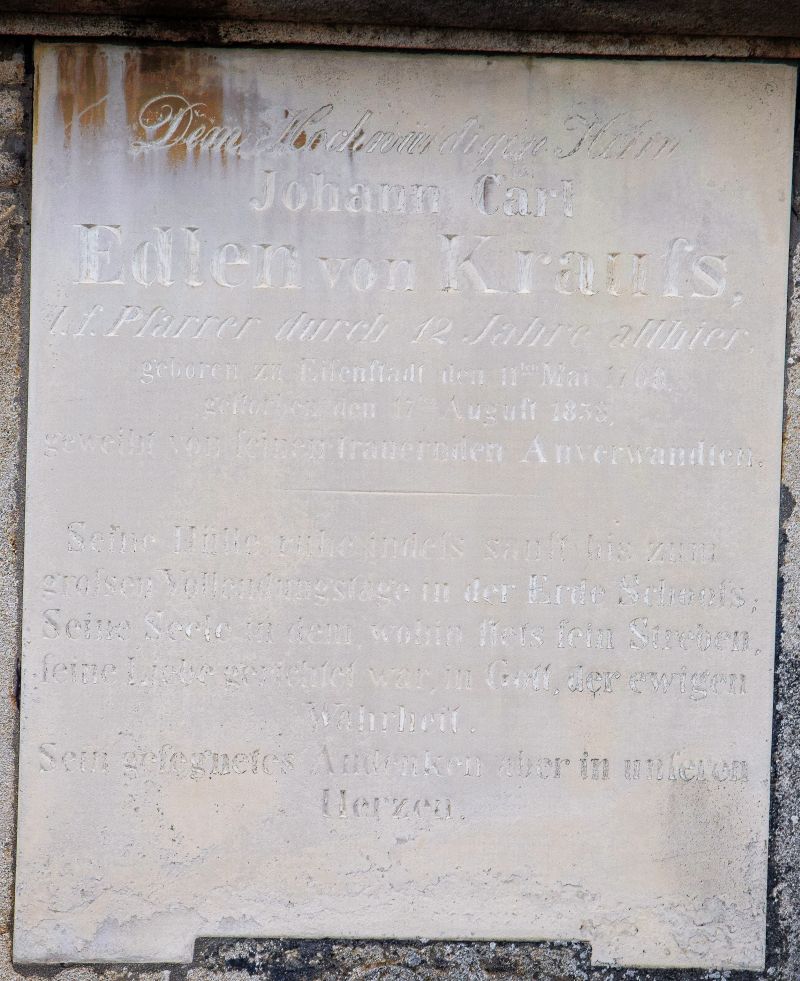 Dem Hochwürdigen Herrn
Johann Carl
Edlen von Krauſs,
l. f. Pfarrer durch 12 Jahre allhier,
geboren zu Eiſenſtadt den 11ten Mai 1768,
geſtorben den 17ten Auguſt 1838,
geweiht von ſeinen trauernden Anverwandten.
Seine Hülle ruhe indeſs sanft bis zum
groſsen Vollendungstage in der Erde Schooſs;
Seine Seele in dem, wohin ſtets ſein Streben,
ſeine Liebe gerichtet war, in Gott, der ewigen
Wahrheit.
Sein geſegnetes Andenken aber in unſeren
Herzen.